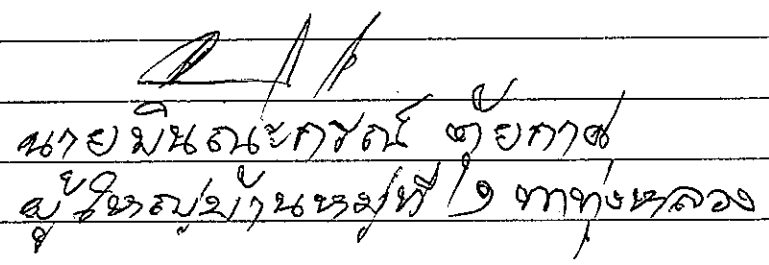 นายมินณะกรณ์ ตุ้ยกาศ
ผู้ใหญ่บ้านหมู่ที่ ๑ ทาทุ่งหลวง